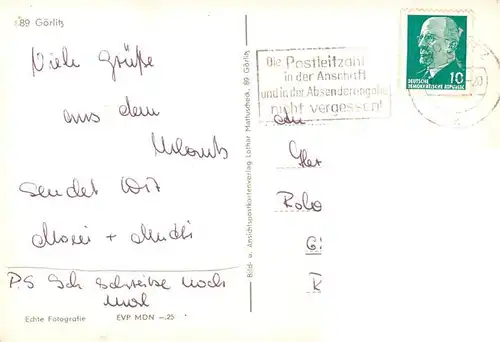 89 Görlitz
Viele Grüße
aus dem
Urlaub
sendet Dir
+
P.S Ich schreibe noch
mal
Echte Fotografie EVP MDN –.25
Bild- u. Ansichtspostkartenverlag Lothar Mattuscheck, 89 Görlitz
Die Postleitzahl
in der Anschrift
und in der Absenderangabe
nicht vergessen!
10
DEUTSCHE
DEMOKRATISCHE REPUBLIK
An